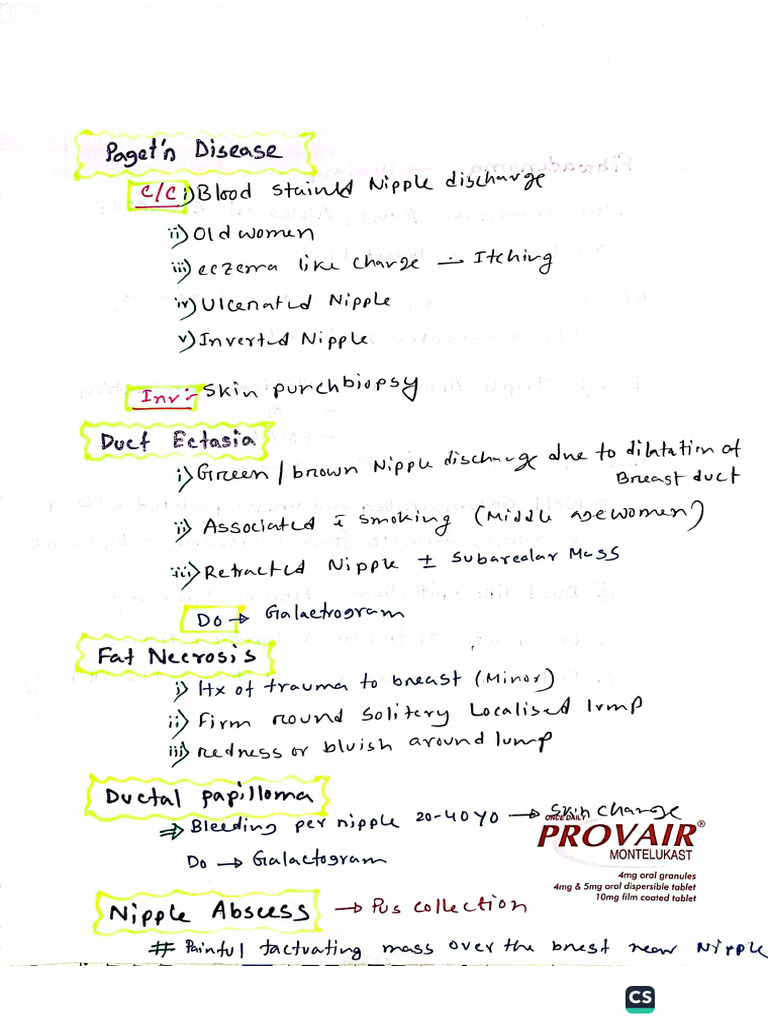 Paget's Disease
C/C i) Blood Stained Nipple discharge
ii) Old women
iii) eczema like charge ∸ Itching
iv) Ulcerated Nipple
v) Inverted Nipple
Inv:- Skin punch biopsy
Duct Ectasia
i) Green / brown Nipple discharge due to dilatation of
Breast duct
ii) Associated c̄ smoking (Middle age women)
iii) Retracted Nipple ± Subareolar Mass
Do → Galactrogram
Fat Necrosis
i) Hx of trauma to breast (Minor)
ii) Firm round Solitery Localised lump
iii) redness or bluish around lump
Ductal papilloma
⇒ Bleeding per nipple 20-40 YO → Skin change
Do → Galactogram
ONCE DAILY
PROVAIR®
MONTELUKAST
4mg oral granules
4mg & 5mg oral dispersible tablet
10mg film coated tablet
Nipple Abscess → Pus collection
# Painful factuating mass over the brest near Nipple
CS